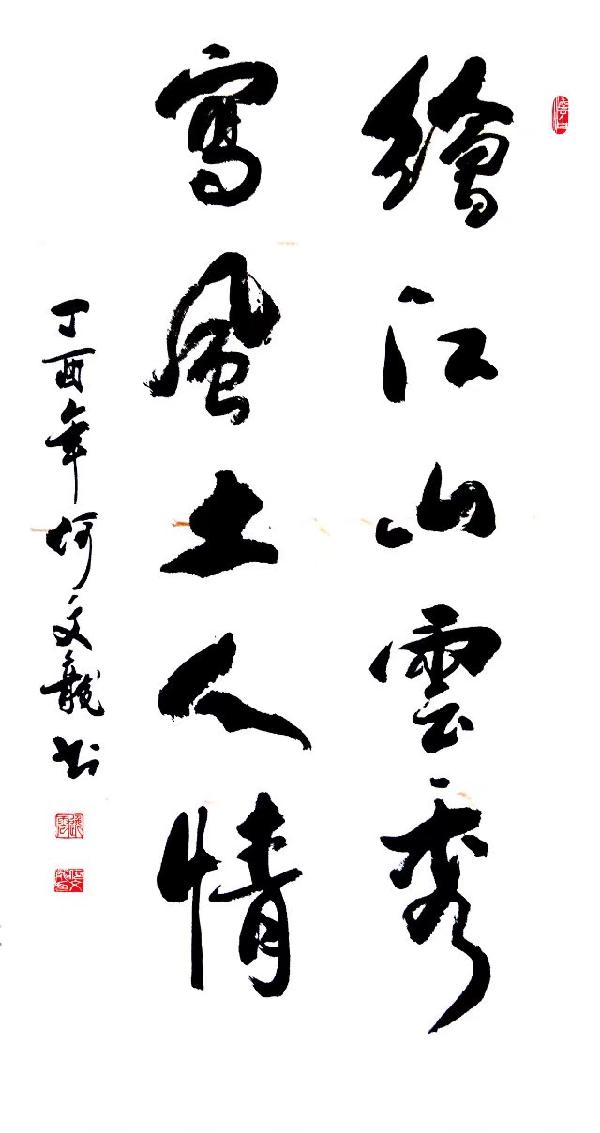 繪江山雲秀
寫風土人情
丁酉年何文龍书